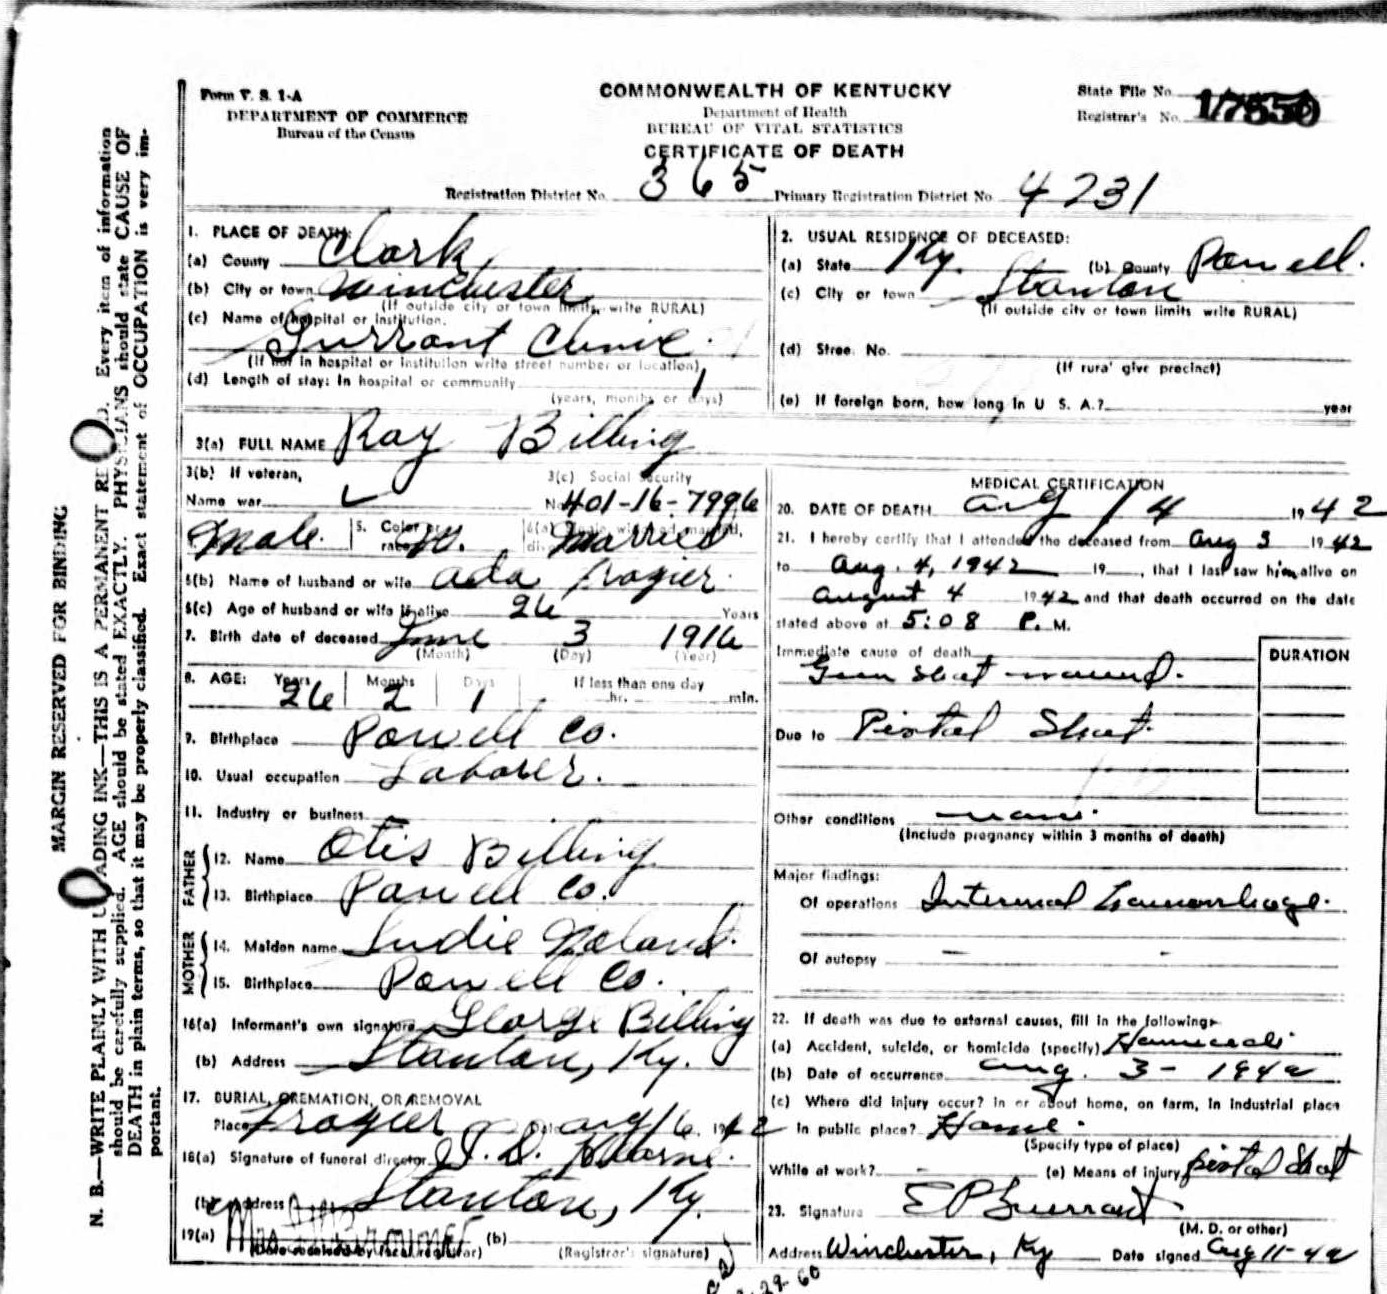 Form V. S. 1-A
DEPARTMENT OF COMMERCE
Bureau of the Census
COMMONWEALTH OF KENTUCKY
Department of Health
BUREAU OF VITAL STATISTICS
CERTIFICATE OF DEATH
State File No.
Registrar's No. 17850
Registration District No. 365 Primary Registration District No. 4231
MARGIN RESERVED FOR BINDING
N. B.—WRITE PLAINLY WITH ADING INK—THIS IS A PERMANENT RE D. Every item of information
should be carefully supplied. AGE should be stated EXACTLY. PHYSICIANS should state CAUSE OF
DEATH in plain terms, so that it may be properly classified. Exact statement of OCCUPATION is very im-
portant.
1. PLACE OF DEATH:
(a) County Clark
(b) City or town Winchester
(If outside city or town limits, write RURAL)
(c) Name of hospital or institution:
Clinic
(If not in hospital or institution write street number or location)
(d) Length of stay: In hospital or community 1
(years, months or days)
2. USUAL RESIDENCE OF DECEASED:
(a) State Ky. (b) County Powell.
(c) City or town Stanton
(If outside city or town limits write RURAL)
(d) Stree. No.
(If rura' give precinct)
(e) If foreign born, how long in U S. A.? year
3(a) FULL NAME Ray Billing
3(b) If veteran,
Name war
3(c) Social Security
No. 401-16-7996
Male. 5. Color or race W. Married
6(b) Name of husband or wife Ada Frazier.
6(c) Age of husband or wife if alive 26 Years
7. Birth date of deceased June 3 1916
(Month) (Day) (Year)
8. AGE: Years Months Days If less than one day
26 2 1 hr. min.
9. Birthplace Powell Co.
10. Usual occupation Laborer.
11. Industry or business
FATHER
12. Name Otis Billing
13. Birthplace Powell Co.
MOTHER
14. Maiden name Noland.
15. Birthplace Powell Co.
16(a) Informant's own signature George Billing
(b) Address Stanton, Ky.
17. BURIAL, CREMATION, OR REMOVAL
Place Frazier Date Aug 6 1942
18(a) Signature of funeral director
(b) Address Stanton, Ky.
19(a) (b)
(Date received by local registrar) (Registrar's signature)
MEDICAL CERTIFICATION
20. DATE OF DEATH Aug 4 1942
21. I hereby certify that I attended the deceased from Aug 3 1942
to Aug. 4, 1942 19 , that I last saw him alive on
August 4 1942 and that death occurred on the date
stated above at 5:08 P. M.
Immediate cause of death DURATION
Gun shot wound.
Due to Pistol Shot.
Other conditions none.
(Include pregnancy within 3 months of death)
Major findings:
Of operations Internal hemorrhage.
Of autopsy –
22. If death was due to external causes, fill in the following:
(a) Accident, suicide, or homicide (specify) Homicide
(b) Date of occurrence Aug. 3 - 1942
(c) Where did injury occur? In or about home, on farm, in industrial place
in public place? Home.
(Specify type of place)
While at work? - (e) Means of injury pistol shot
23. Signature
(M. D. or other)
Address Winchester, Ky Date signed Aug 11-42